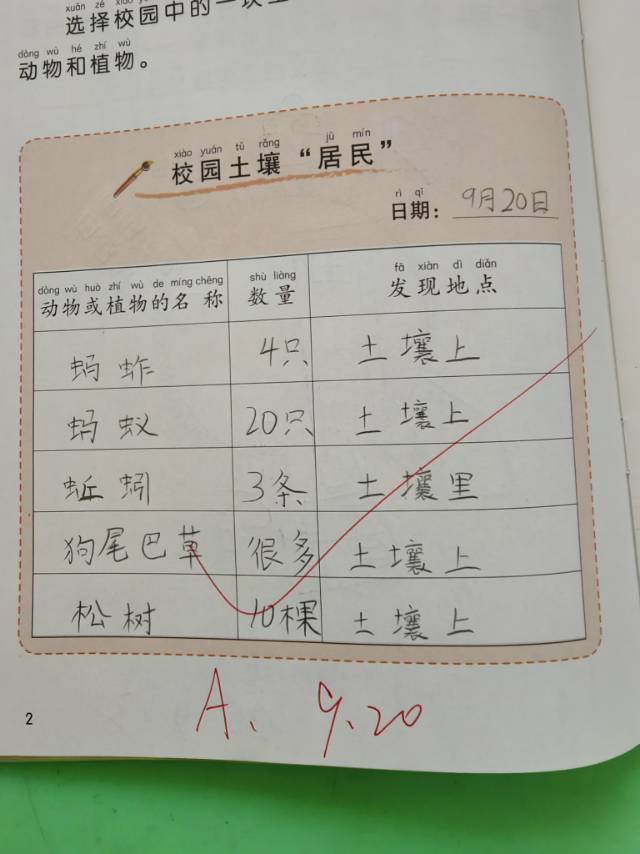 选择校园中的一
动物和植物。
dòng wù hé zhí wù
xiào yuán tǔ rǎng jū mín
校园土壤“居民”
rì qī
日期： 9月20日
dòng wù huò zhí wù de míng chēng shù liàng fā xiàn dì diǎn
动物或植物的名称 数量 发现地点
蚂蚱 4只 土壤上
蚂蚁 20只 土壤上
蚯蚓 3条 土壤里
狗尾巴草 很多 土壤上
松树 10棵 土壤上
A、 9.20
2